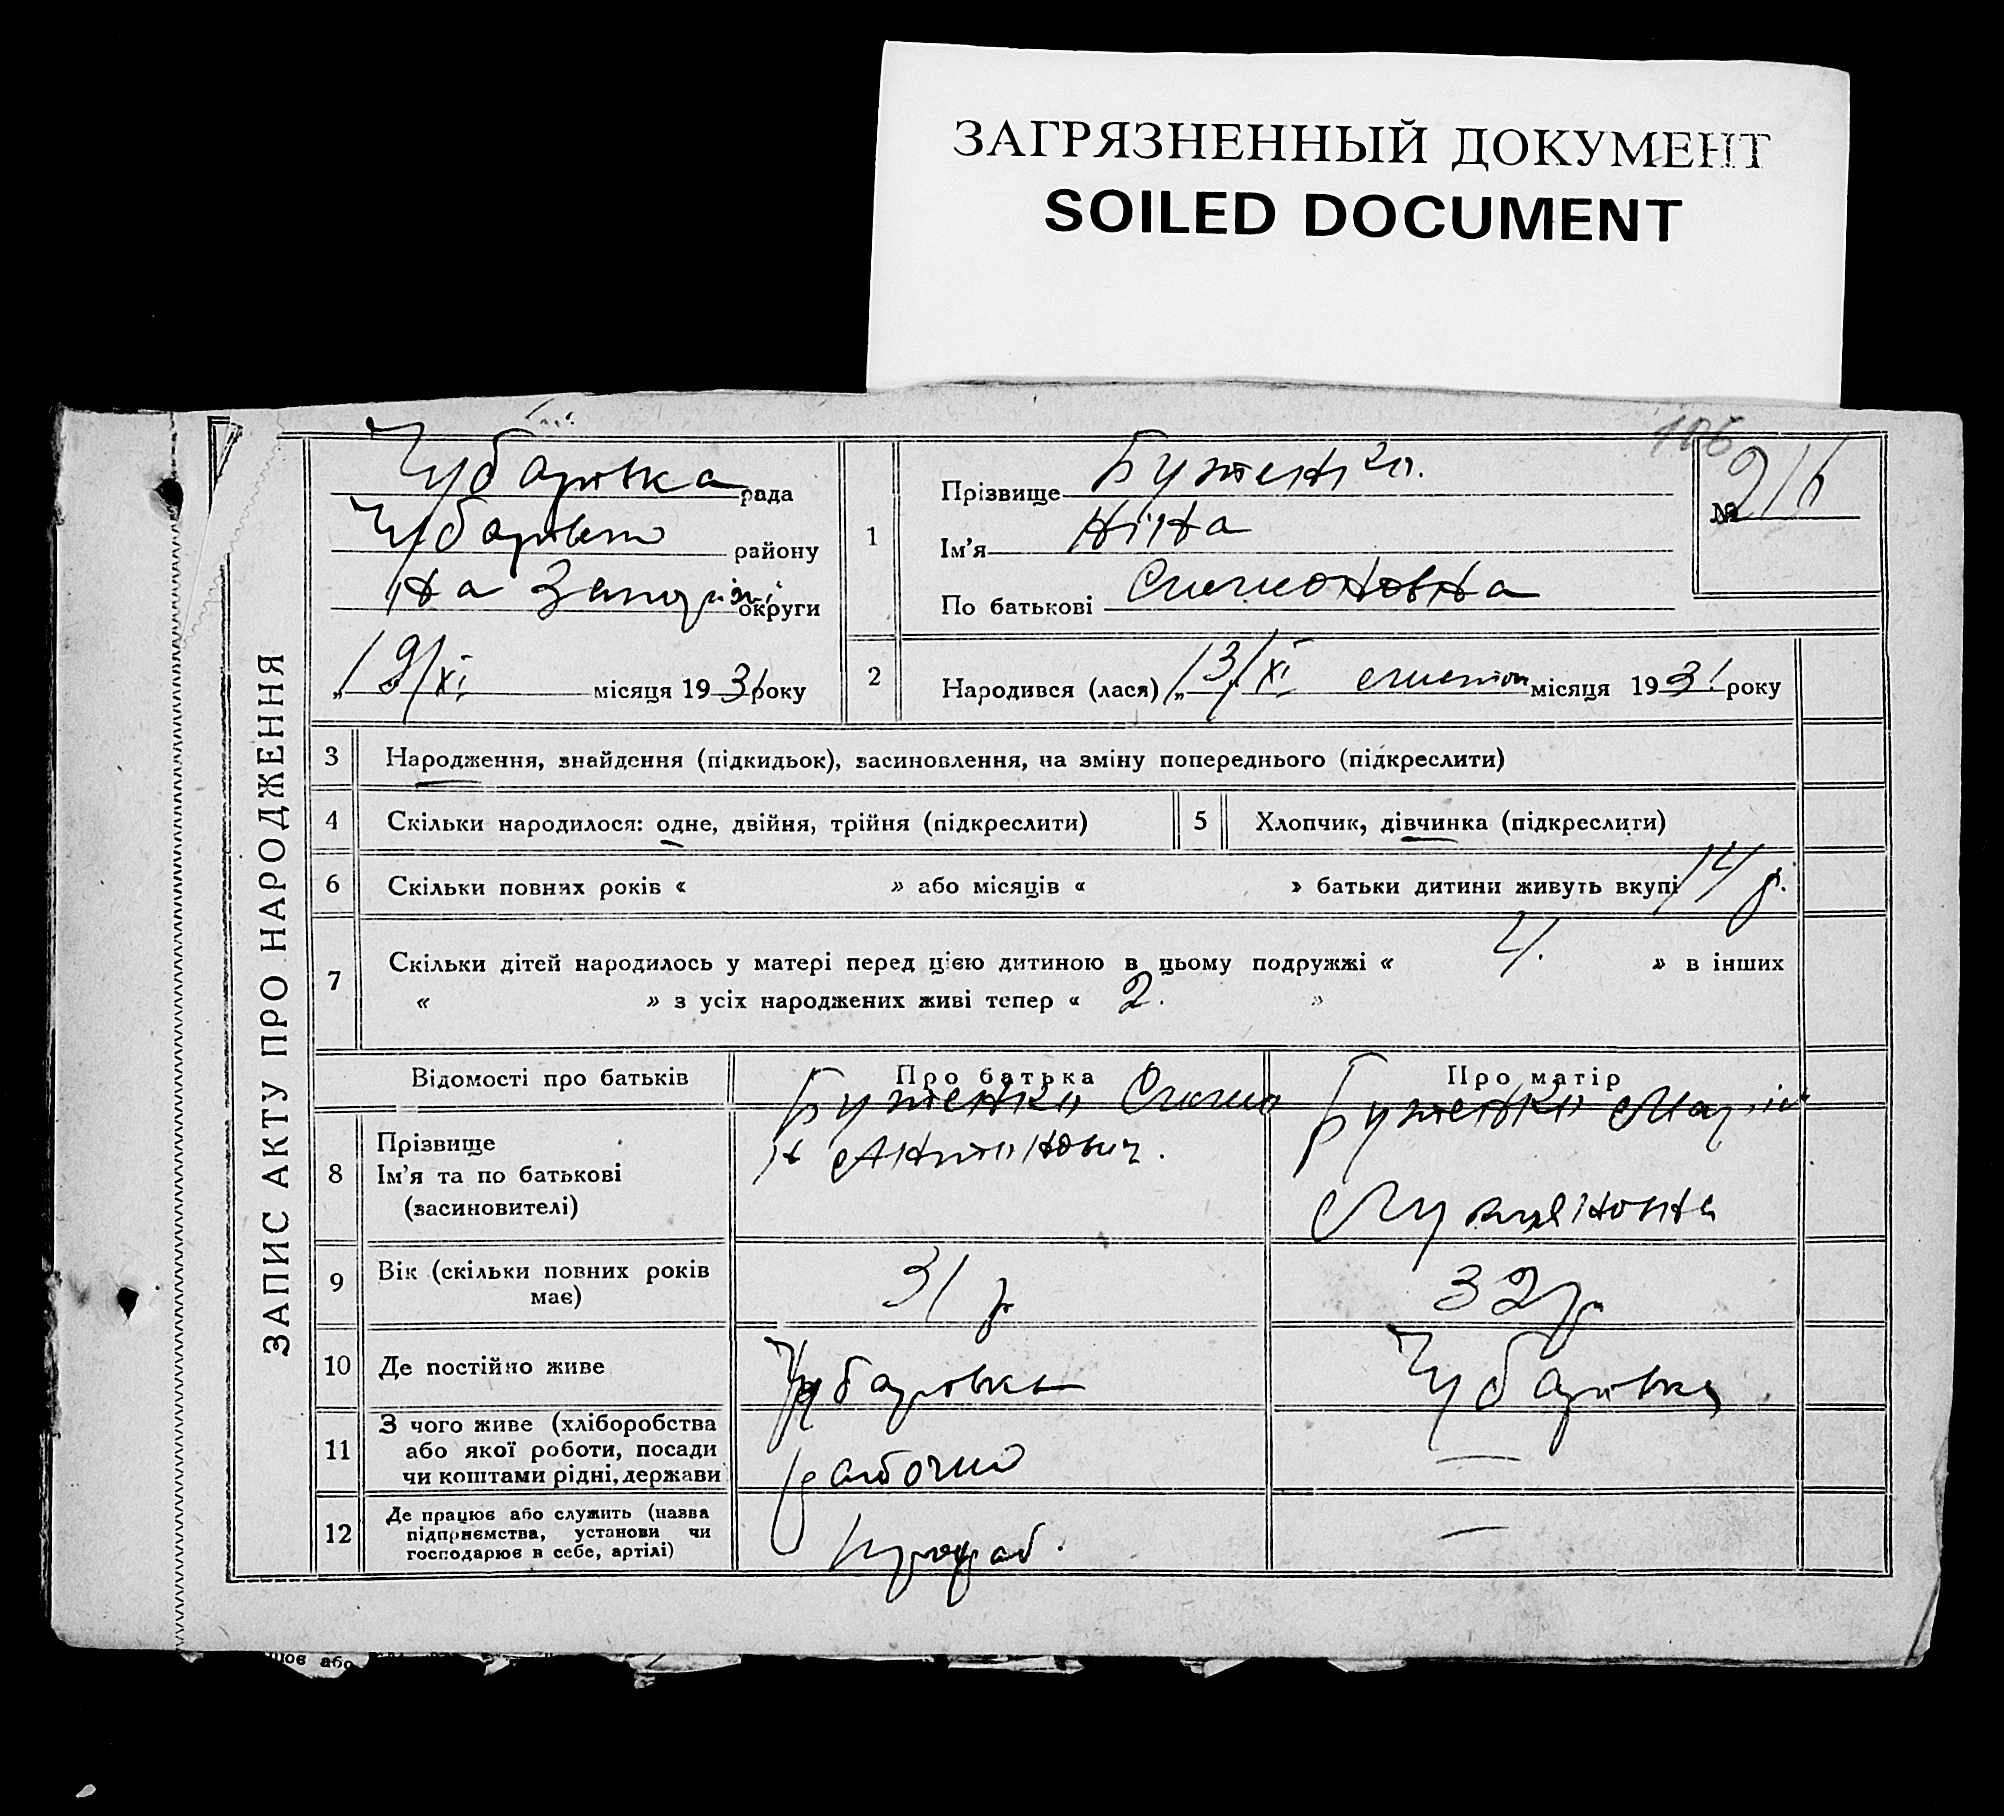 ЗАГРЯЗНЕННЫЙ ДОКУМЕНТ
SOILED DOCUMENT
106
ЗАПИС АКТУ ПРО НАРОДЖЕННЯ
Чубарівка рада
району
на округи
„19/XI місяця 1931 року
1
Прізвище Бутенко.
Ім'я Ніна
По батькові Симоновна
№ 216
2 Народився (лася) „13/XI місяця 1931 року
3 Народження, знайдення (підкидьок), засиновлення, на зміну попереднього (підкреслити)
4 Скільки народилося: одне, двійня, трійня (підкреслити) 5 Хлопчик, дівчинка (підкреслити)
6 Скільки повних років « » або місяців « » батьки дитини живуть вкупі 14 р.
7 Скільки дітей народилось у матері перед цією дитиною в цьому подружжі « 4. » в інших
« » з усіх народжених живі тепер « 2. »
Відомості про батьків Про батька Про матір
8 Прізвище
Ім'я та по батькові
(засновителі)
Бутенко Симо
н Антонович.
Бутенко Марія
9 Вік (скільки повних років
має)
31 р
32 р
10 Де постійно живе Чубарівка Чубарівка
11 З чого живе (хліборобства
або якої роботи, посади
чи коштами рідні, держави
рабочий
—
12 Де працює або служить (назва
підприємства, установи чи
господарює в себе, артілі)
—
або